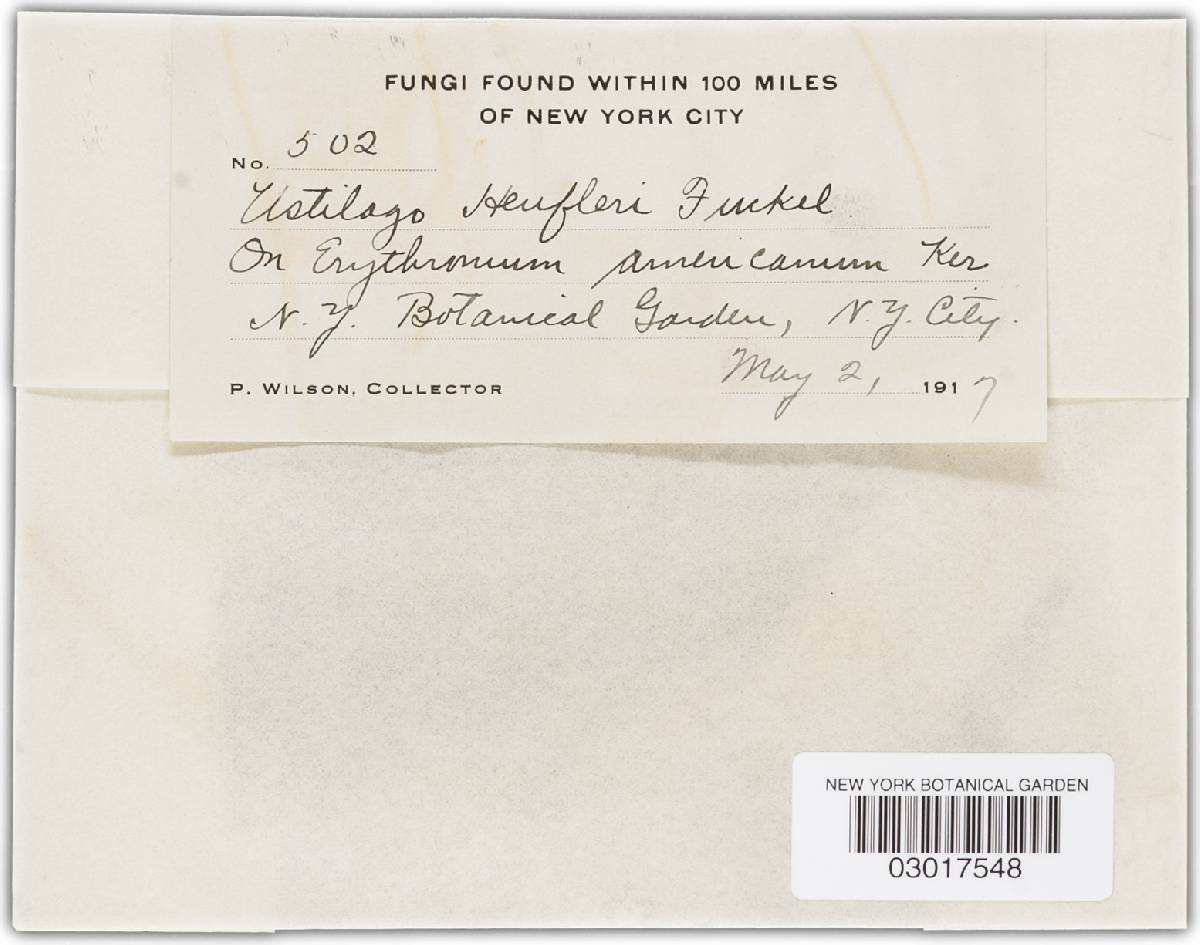 FUNGI FOUND WITHIN 100 MILES
OF NEW YORK CITY
No. 502
Ustilago Heufleri Fuckel
On Erythronium americanum Ker
N. Y. Botanical Garden, N. Y. City.
May 2, 1917
P. WILSON, COLLECTOR
NEW YORK BOTANICAL GARDEN
03017548